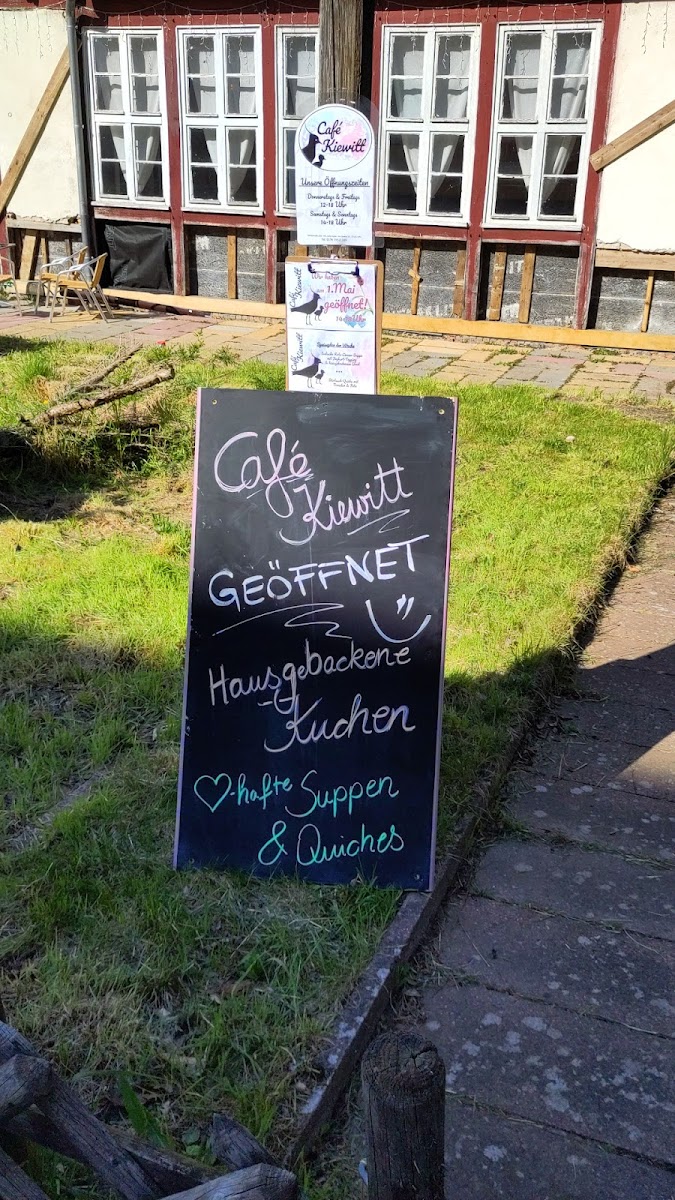 Café
Kiewitt
Unsere Öffnungszeiten
Donnerstags & Freitags
12-18 Uhr
Samstags & Sonntags
14-18 Uhr
Café Kiewitt
Wir haben
am 1. Mai
geöffnet!
Café Kiewitt
Café
Kiewitt
GEÖFFNET
Hausgebackene
Kuchen
♡-hafte Suppen
& Quiches